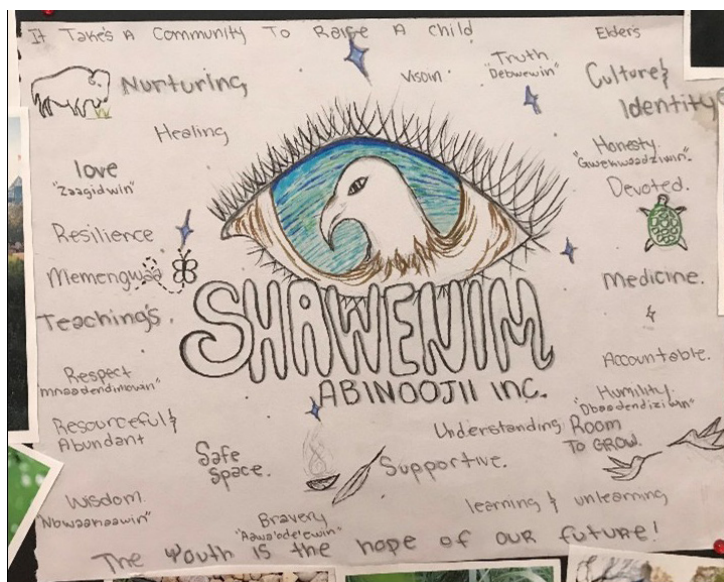 It Take's A Community To Raise A Child
Elders
Nurturing
Visoin
Truth
"Debwewin"
Culture &
Identity
Healing
Honesty
"Gwekwaadziwin"
love
"Zaagidwin"
Devoted.
Resilience
Memengwaa
Medicine.
&
Teaching's.
SHAWENIM
ABINOOJII INC.
Accountable.
Respect
"mnaadendimowin"
Humility
"Dbaadendiziwin"
Resourceful &
Abundant
Understanding
Room
To GROW.
Safe
Space.
Supportive.
Wisdom
"Nbwaanaawin"
learning & unlearning
Bravery
"Aawa'ode'ewin"
The Youth is the hope of our future!